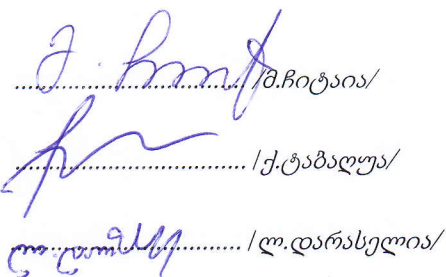 ........................ /მ.ჩიტაია/
........................ /ქ.ტაბაღუა/
........................ /ლ.დარასელია/